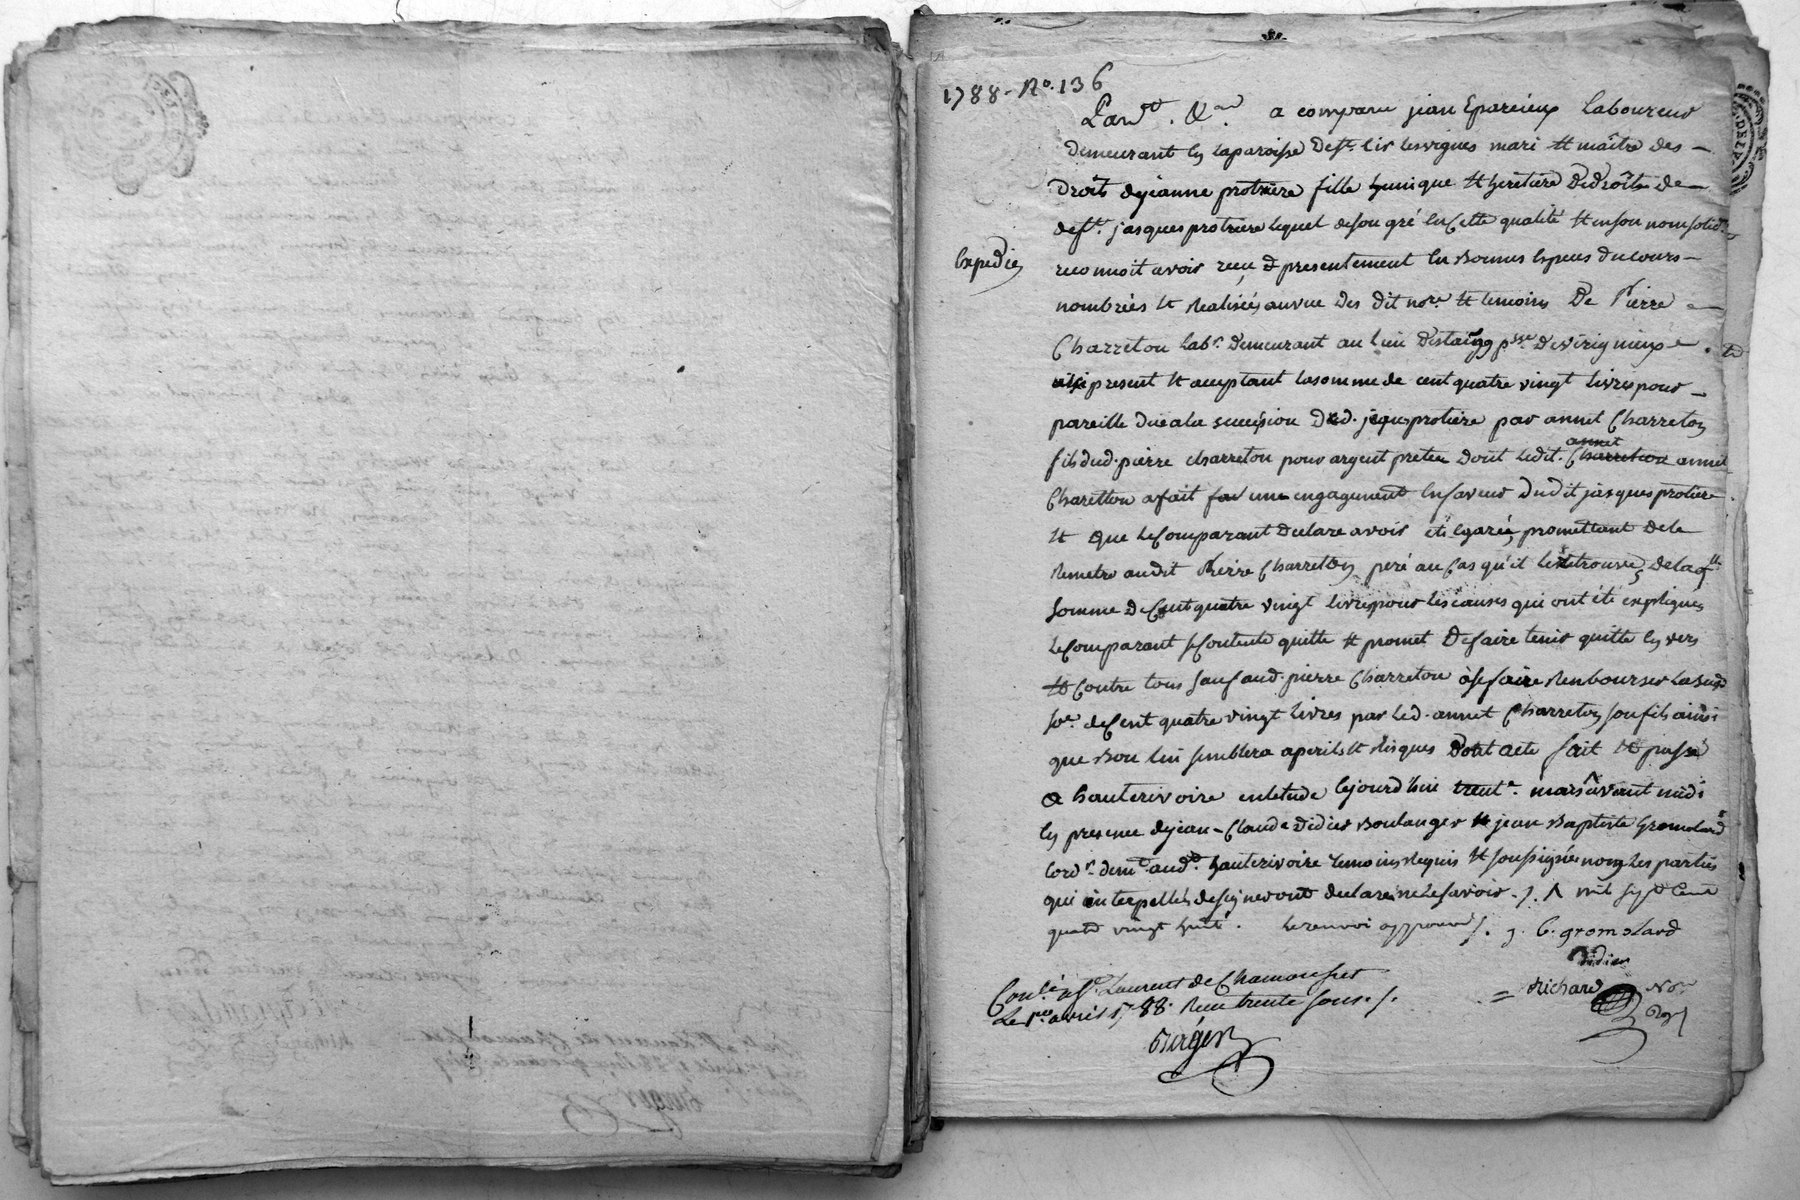 1788 - No. 136
Pard.t &.a a comparu jean Eparcieux Laboureur
demeurant en la paroisse de st. Cir les vignes mari et maître des
droits de jeanne protiere fille hunique et heritiere de droits de
deft. jasques protiere lequel de son gré en cette qualité et en son nom solid.
Expediée
reconnoit avoir reçu et presentement en bonnes especes du cours
nombrées et realisées au vue des dit nore. et temoins De Pierre
Charreton labr. demeurant au lieu p.sse de virignieux
ici present et aceptant la somme de cent quatre vingt livres pour
pareille due a la succésion dud. jaques protiere par annet Charreton
fils dud. pierre charreton pour argent pretée dont ledit. Charreton annet annet
Charetton a fait une engagement en faveur dudit jasques protiere
et que le Comparant declare avoir été egarée, promettant de le
remetre audit Pierre Charreton peré au cas qu'il le retrouve, de laq.lle
somme de Cent quatre vingt livres pour les causes qui ont été expliquées
le Comparant se Contente quitte et promet de faire tenir quitte en vers
et Contre tous sauf aud. pierre Charreton à se faire Renbourser la susd.
so.e de Cent quatre vingt livres par led. annet Charreton son fils ainsi
que bon lui semblera a perils et risques Dont acte fait et passé
a hauterivoire en letude Cejourd'hui trent.e mars avant midi
en presence de jean-Claude Didier boulanger et jean Baptiste Gromolard
Cord.r dem.t aud.t hauterivoire temoins requis et soussignées non les parties
qui interpellés de signer ont declare ne le savoir. /. Λ mil sept Cent
quatre vingt huit. le renvoi approuvé /. j. B. gromolard
Didier
= Richard No.re Roy.l
Con.lé a St. Laurent de Chamousset
Le p.er avril 1788. Reçu trente sous. /.